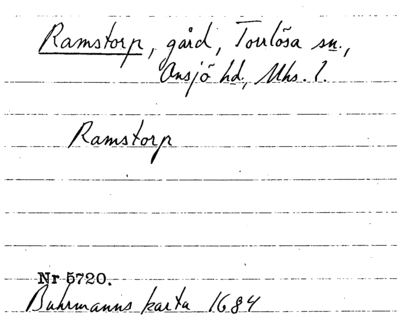 Ramstorp, gård, Torrlösa sn.,
Onsjö hd., Mhs. l.
Ramstorp
Nr 5720.
Buhrmanns karta 1684